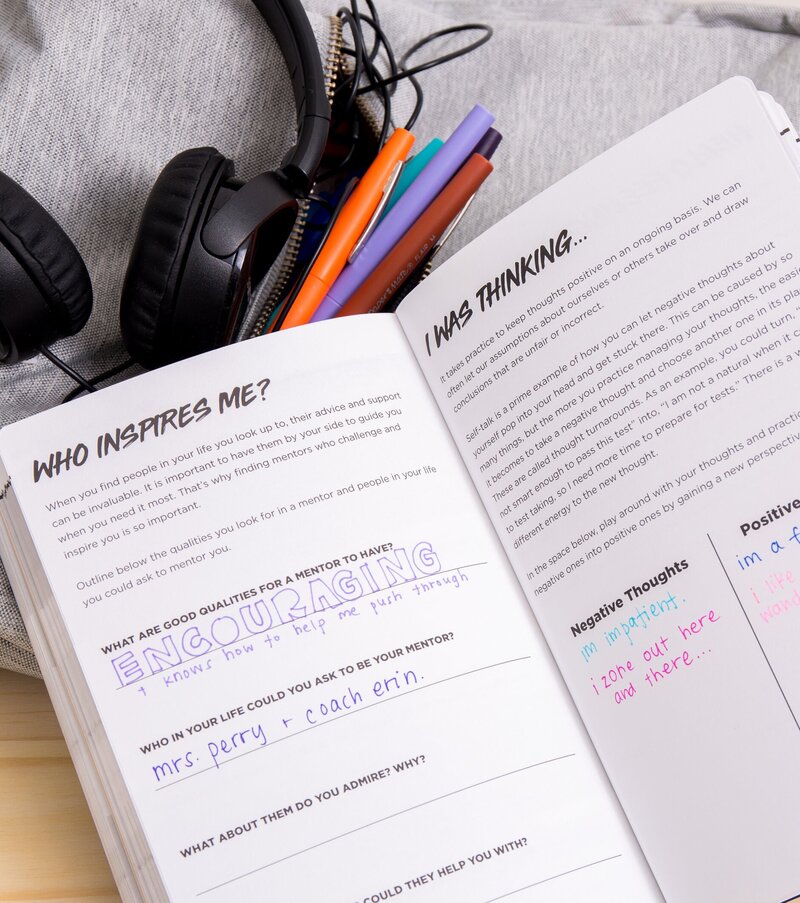 WHO INSPIRES ME?
When you find people in your life you look up to, their advice and support
can be invaluable. It is important to have them by your side to guide you
when you need it most. That's why finding mentors who challenge and
inspire you is so important.
Outline below the qualities you look for in a mentor and people in your life
you could ask to mentor you.
WHAT ARE GOOD QUALITIES FOR A MENTOR TO HAVE?
ENCOURAGING
+ knows how to help me push through
WHO IN YOUR LIFE COULD YOU ASK TO BE YOUR MENTOR?
mrs. perry + coach erin.
WHAT ABOUT THEM DO YOU ADMIRE? WHY?
COULD THEY HELP YOU WITH?
I WAS THINKING...
It takes practice to keep thoughts positive on an ongoing basis. We can
often let our assumptions about ourselves or others take over and draw
conclusions that are unfair or incorrect.
Self-talk is a prime example of how you can let negative thoughts about
yourself pop into your head and get stuck there. This can be caused by so
many things, but the more you practice managing your thoughts, the easi
it becomes to take a negative thought and choose another one in its pla
These are called thought turnarounds. As an example, you could turn,
not smart enough to pass this test" into, "I am not a natural when it c
to test taking, so I need more time to prepare for tests." There is a
different energy to the new thought.
In the space below, play around with your thoughts and practic
negative ones into positive ones by gaining a new perspectiv
Negative Thoughts
im impatient.
i zone out here
and there...
Positive
im a f
i like
wand